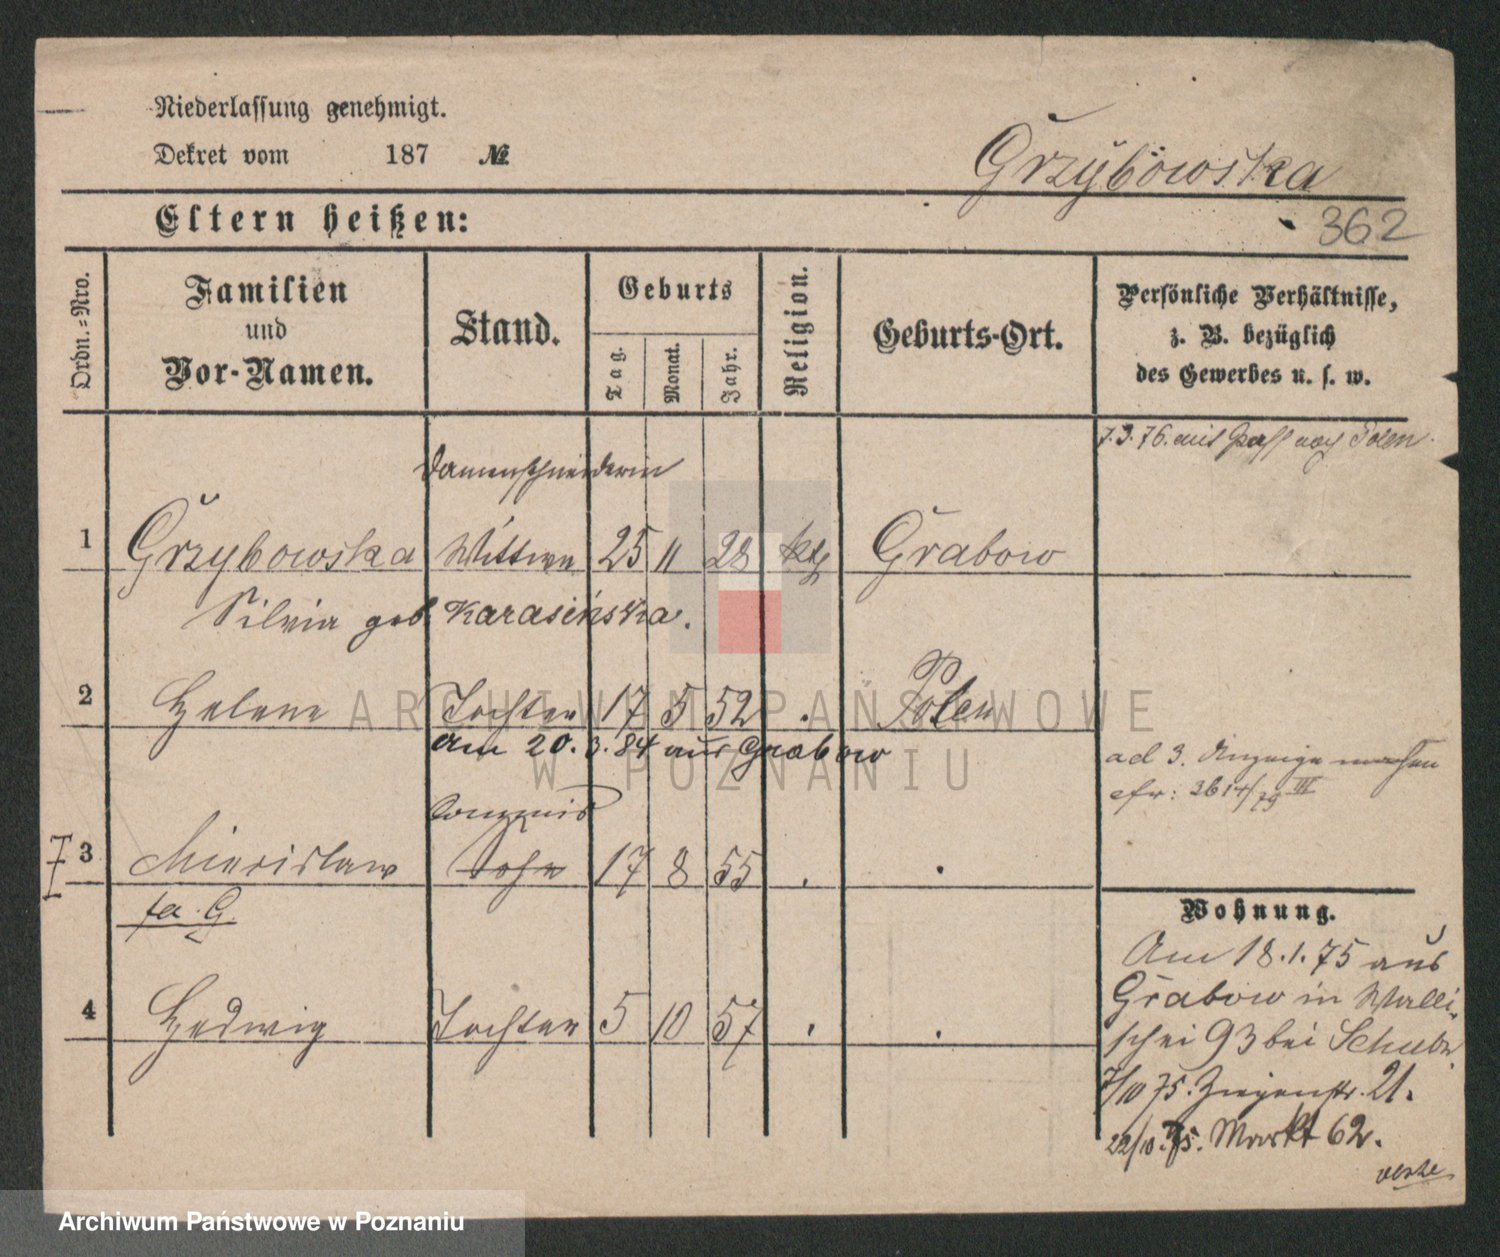 Niederlassung genehmigt.
Dekret vom 187 №
Grzybowska
Eltern heißen:
362
Ordn.=Nro.
Familien
und
Vor-Namen.
Stand.
Geburts
Tag.
Monat.
Jahr.
Religion.
Geburts-Ort.
Persönliche Verhältnisse,
z. B. bezüglich
des Gewerbes u. s. w.
7.3.76. mit Pass nach Polen.
Damenschneiderin
1 Grzybowska Wittwe 25 11 28 kth Grabow
Silvia geb. Karasińska.
2 Helene Tochter 17 5 52 . Polen
am 20.3.84 aus Grabow
ad 3. Anzeige machen
cfr: 3614/79 III
Commis
3 Miecislaw Sohn 17 8 55 . .
fa. G.
4 Hedwig Tochter 5 10 57 . .
Wohnung.
Am 18.1.75 aus
Grabow in Walli-
schei 93 bei Schubr.
7/10 75. Ziegenstr. 21.
22/10. 75. Markt 62.
verte
ARCHIWUM PAŃSTWOWE
W POZNANIU
Archiwum Państwowe w Poznaniu